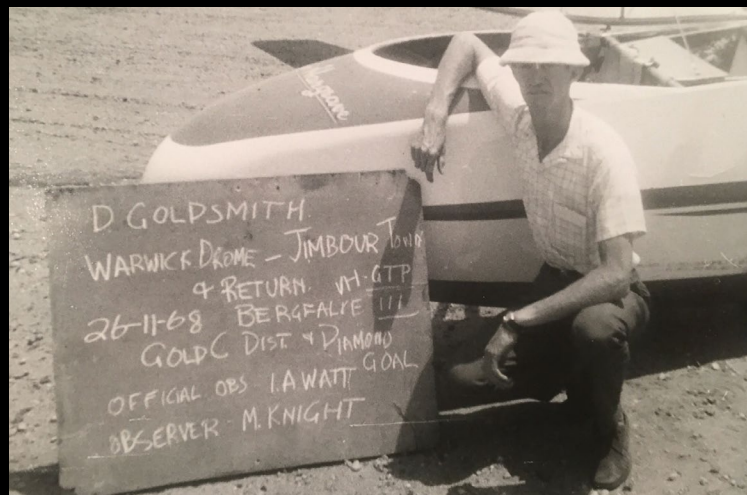 D GOLDSMITH
WARWICK DROME - JIMBOUR TOWN
& RETURN. VH-GTP
26-11-68 BERGFALKE III
GOLD C DIST. & DIAMOND
GOAL
OFFICIAL OBS I.A WATT
OBSERVER M. KNIGHT